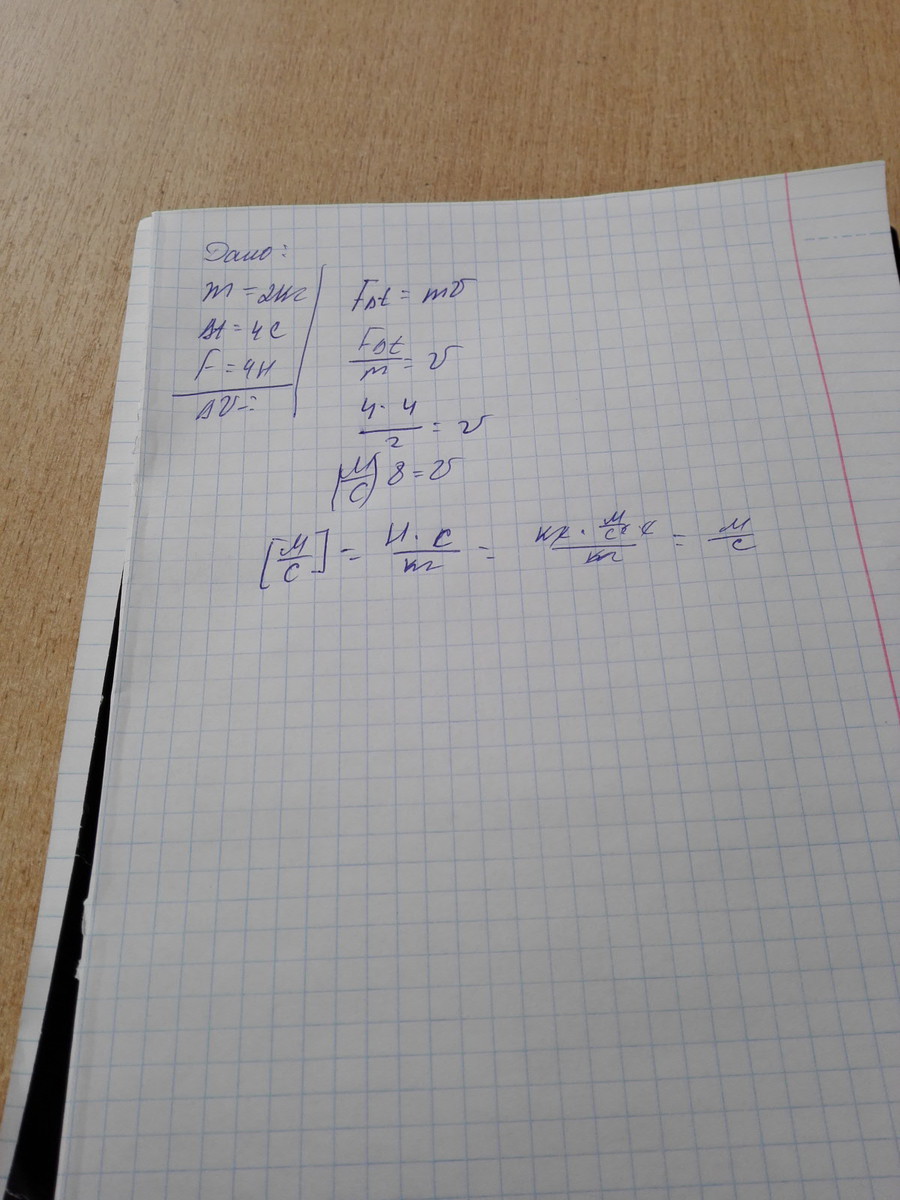 Дано:
m = 2кг
Δt = 4с
F = 4Н
ΔV-?
FΔt = mv
FΔt/m = v
4 · 4/2 = v
(м/с) 8 = v
[м/с] = Н · с/кг = кг · м/с² · с/кг = м/с